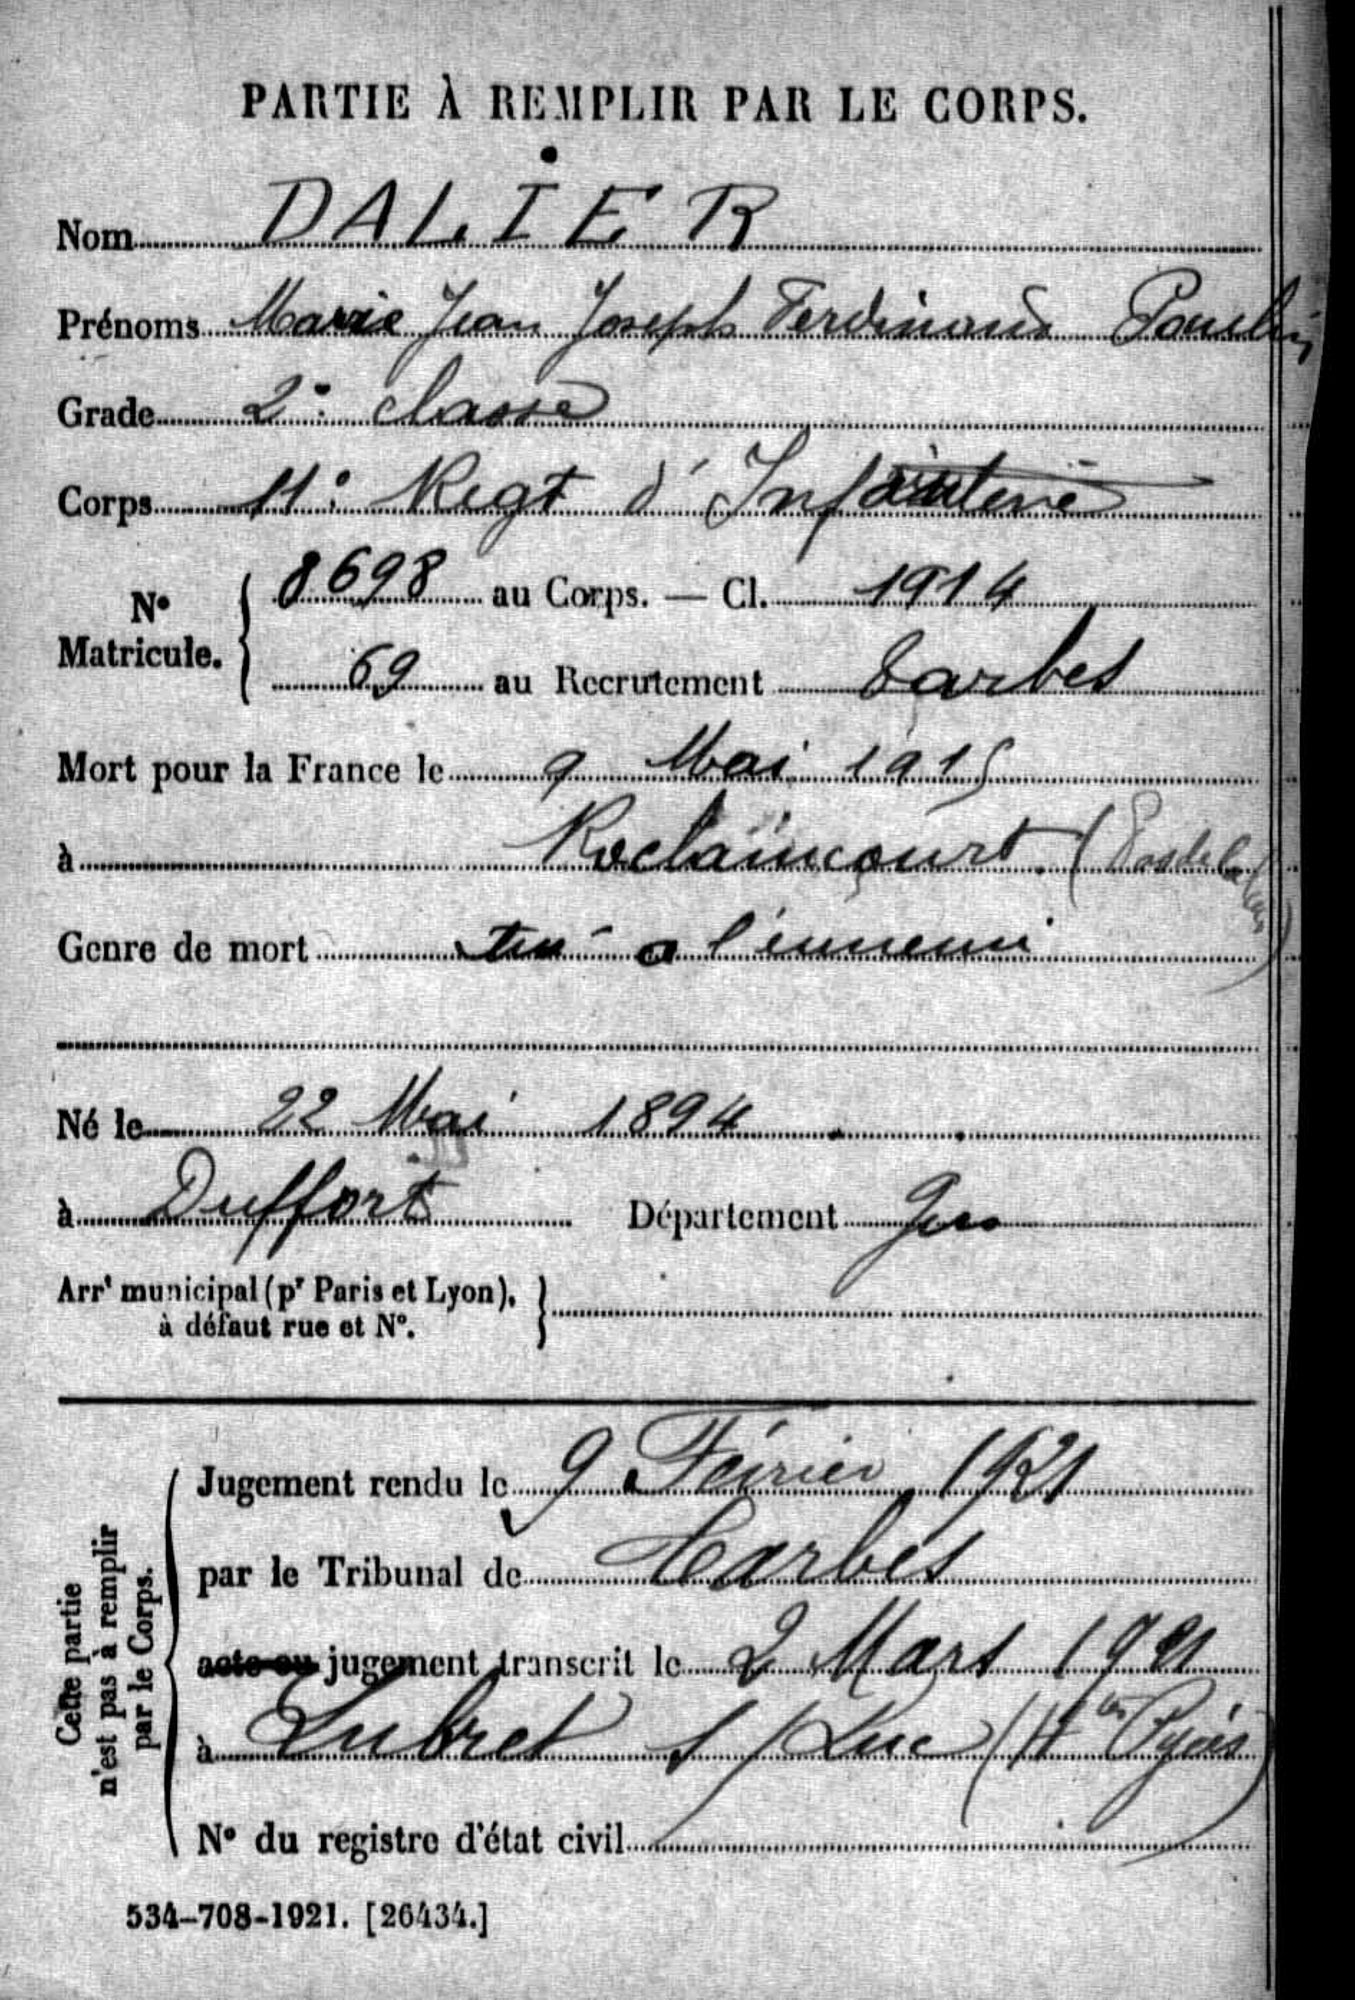 PARTIE À REMPLIR PAR LE CORPS.
Nom DALIER
Prénoms Marie Jean Joseph Ferdinand Paulin
Grade 2e classe
Corps 11e Regt d'Infanterie
No Matricule. { 8698 au Corps. — Cl. 1914
69 au Recrutement Tarbes
Mort pour la France le 9 Mai 1915
à Roclaincourt (Pas de Calais)
Genre de mort tué a l'ennemi
Né le 22 Mai 1894
à Duffort Département Gers
Arrt municipal (pr Paris et Lyon), à défaut rue et No. }
Cette partie n'est pas à remplir par le Corps.
Jugement rendu le 9 Février 1921
par le Tribunal de Tarbes
acte ou jugement transcrit le 2 Mars 1921
à Lubret s/ Luc (Htes Pyées)
No du registre d'état civil
534-708-1921. [26434.]